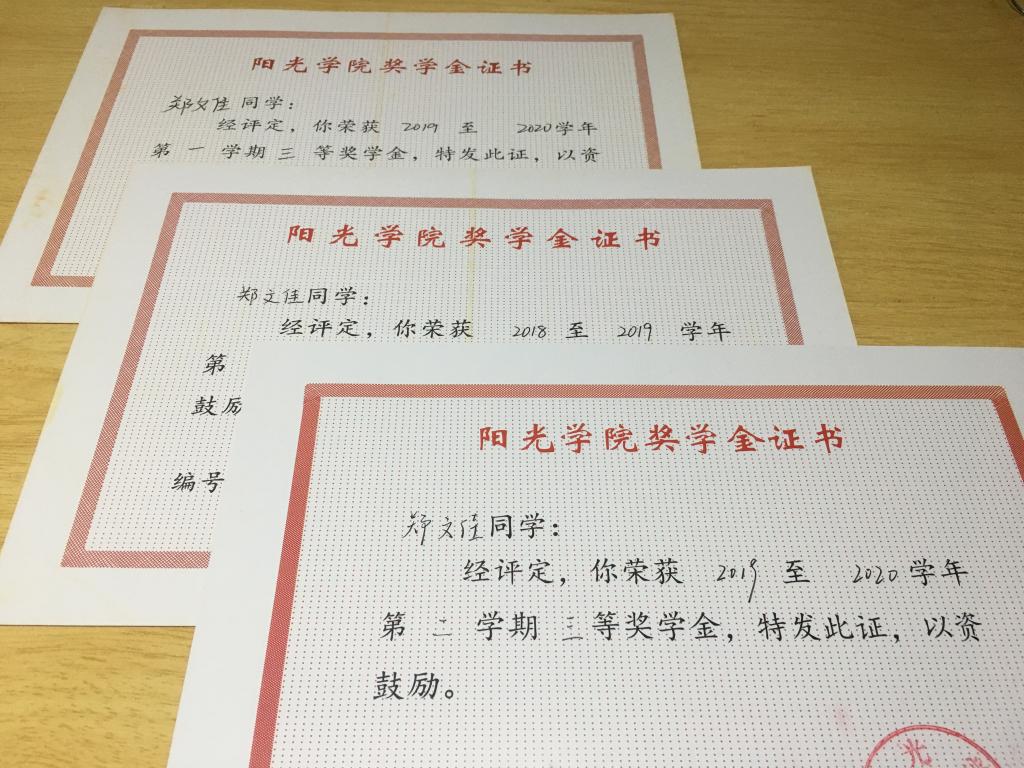 阳光学院奖学金证书
郑文佳同学：
经评定，你荣获 2019 至 2020学年
第 一 学期 三 等奖学金，特发此证，以资
阳光学院奖学金证书
郑文佳同学：
经评定，你荣获 2018 至 2019 学年
第
鼓励
编号
阳光学院奖学金证书
郑文佳同学：
经评定，你荣获 2019 至 2020学年
第 二 学期 三 等奖学金，特发此证，以资
鼓励。
光